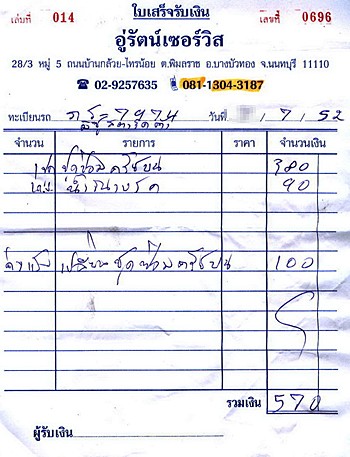 ใบเสร็จรับเงิน
เล่มที่ 014 เลขที่ 0696
อู่รัตน์เซอร์วิส
28/3 หมู่ 5 ถนนบ้านกล้วย-ไทรน้อย ต.พิมลราช อ.บางบัวทอง จ.นนทบุรี 11110
☎ 02-9257635 081-1304-3187
ทะเบียนรถ 7974 วันที่ / 7 / 52
จำนวน รายการ ราคา จำนวนเงิน
380
90
ค่าแรง เปลี่ยน 100
รวมเงิน 570
ผู้รับเงิน